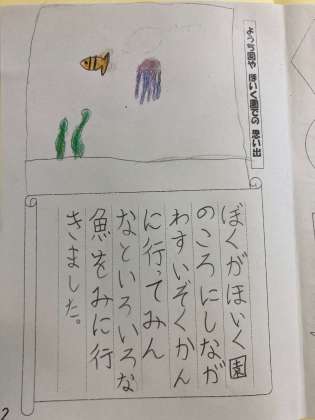 ようち園や ほいく園での 思い出
ぼくがほいく園
のころにしなが
わすいぞくかん
に行ってみん
なといろいろな
魚をみに行
きました。
2